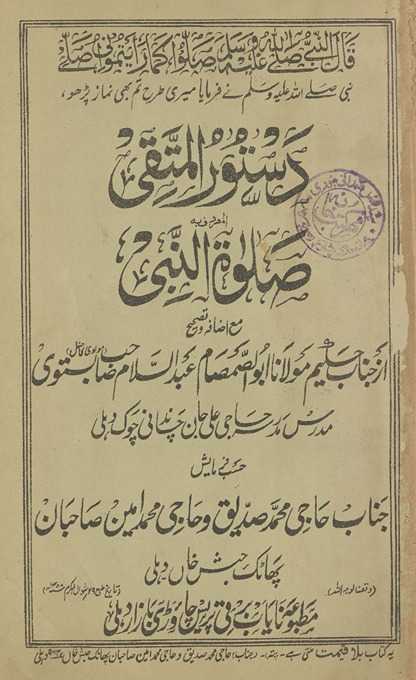 قال النبی صلی اللہ علیہ وسلم صلوا کما رأیتمونی اصلی
نبی صلے اللہ علیہ وسلم نے فرمایا میری طرح تم بھی نماز پڑھو،
دستور المتقی
المعروف بہ
صلوٰۃ النبی
مع اضافہ و تصحیح
از جناب حکیم مولانا ابو الصمصام عبد السلام صاحب بستوی
مدرس مدرسہ حاجی علی جان چاندنی چوک دہلی
حسب فرمایش
جناب حاجی محمد صدیق و حاجی محمد امین صاحبان
پھاٹک حبش خاں دہلی
(وقفاً لوجہ اللہ)
مطبوعہ نایاب برقی پریس چاوڑی بازار دہلی
یہ کتاب بلا قیمت ملتی ہے۔ پتہ۔ جناب حاجی محمد صدیق و حاجی محمد امین صاحبان پھاٹک حبش خاں دہلی